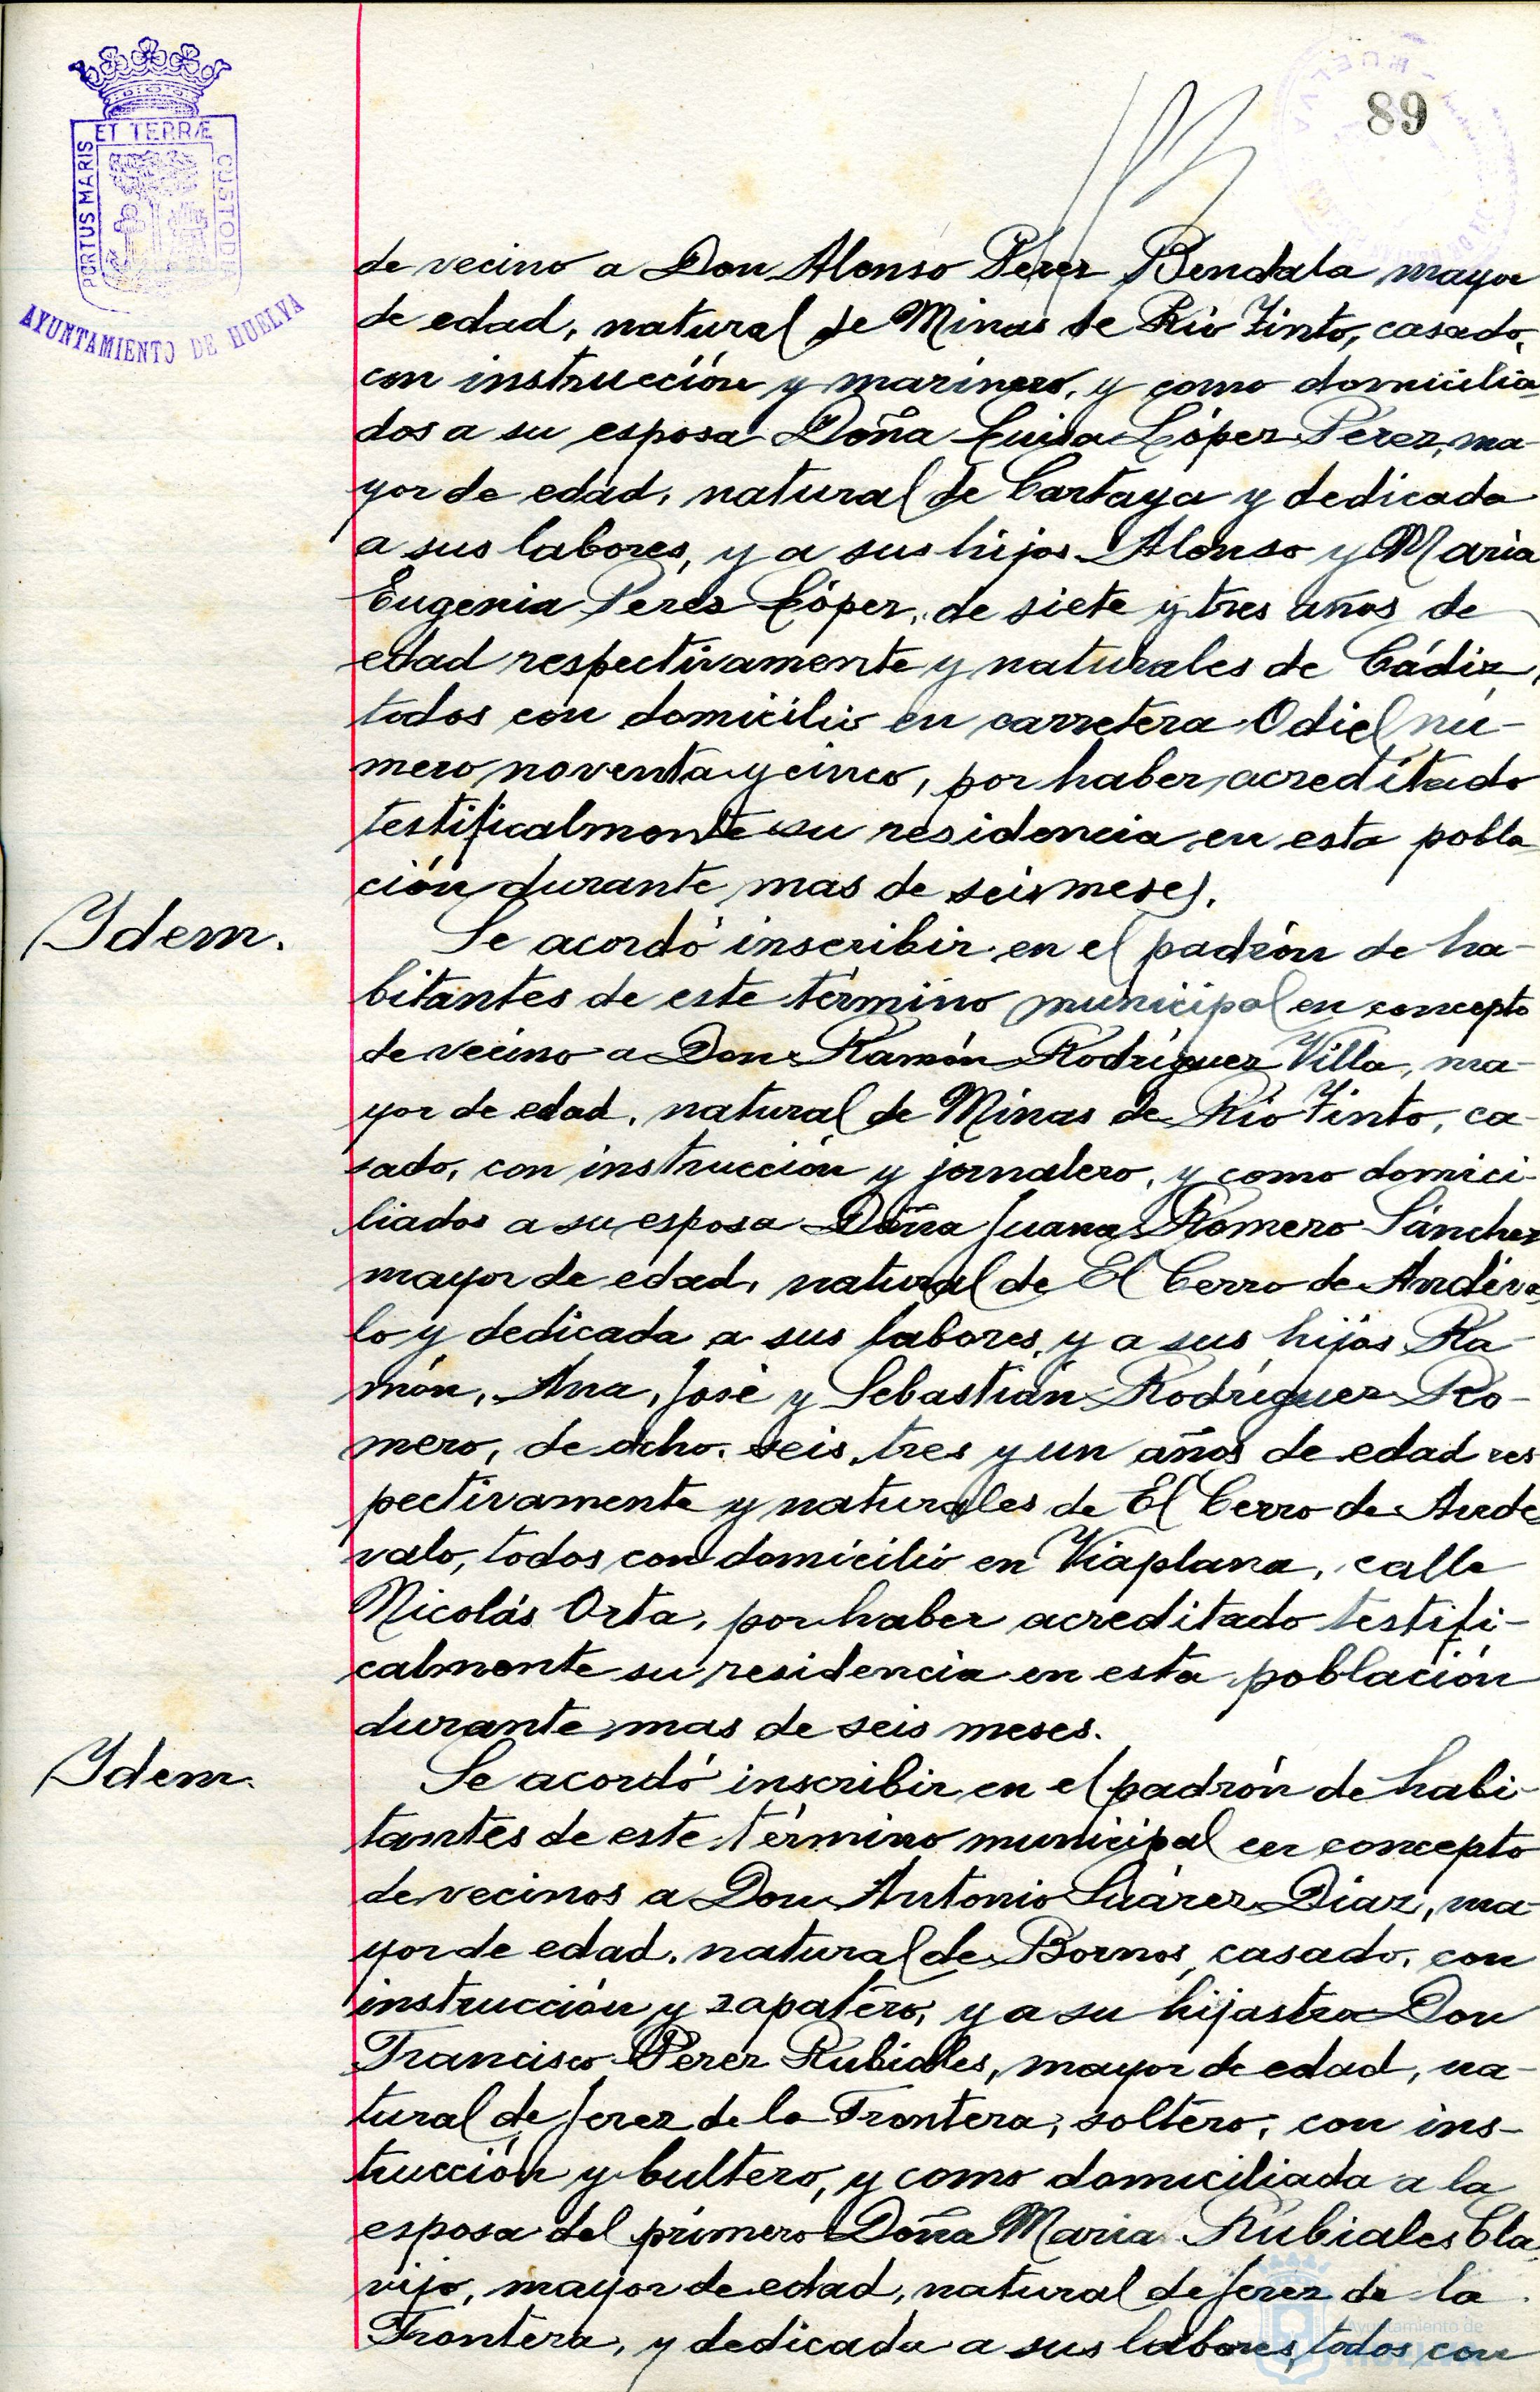 ET TERRÆ
PORTUS MARIS
CUSTODI
AYUNTAMIENTO DE HUELVA
89
de vecino a Don Alonso Pérez Bendala mayor
de edad, natural de Minas de Rio Tinto, casado,
con instrucción y marinero, y como domicilia
dos a su esposa Doña Luisa López Pérez, ma-
yor de edad, natural de Cartaya y dedicada
a sus labores, y a sus hijos Alonso y Maria
Eugenia Perez López, de siete y tres años de
edad respectivamente y naturales de Cádiz,
todos con domicilio en carretera Odiel nú-
mero noventa y cinco, por haber acreditado
testificalmente su residencia en esta pobla
ción durante mas de seis meses.
Ydem.
Se acordó inscribir en el padrón de ha-
bitantes de este término municipal en concepto
de vecino a Don Ramón Rodríguez Villa, ma-
yor de edad, natural de Minas de Rio Tinto, ca-
sado, con instrucción y jornalero, y como domici-
liados a su esposa Doña Juana Romero Sánchez
mayor de edad, natural de El Cerro de Andéva
lo y dedicada a sus labores, y a sus hijos Ra-
món, Ana, José y Sebastián Rodríguez Ro-
mero, de ocho, seis, tres y un años de edad res
pectivamente y naturales de El Cerro de Andé
valo, todos con domicilio en Viaplana, calle
Nicolás Orta, por haber acreditado testifi-
calmente su residencia en esta población
durante mas de seis meses.
Ydem.
Se acordó inscribir en el padrón de habi-
tantes de este término municipal en concepto
de vecinos a Don Antonio Suárez Diaz, ma-
yor de edad, natural de Bornos, casado, con
instrucción y zapatero, y a su hijastro Don
Francisco Pérez Rubiales, mayor de edad, na-
tural de Jerez de la Frontera, soltero, con ins-
trucción y bultero, y como domiciliada a la
esposa del primero Doña Maria Rubiales Cla
vijo, mayor de edad, natural de Jerez de la
Frontera, y dedicada a sus labores, todos con
Ayuntamiento de
HUELVA